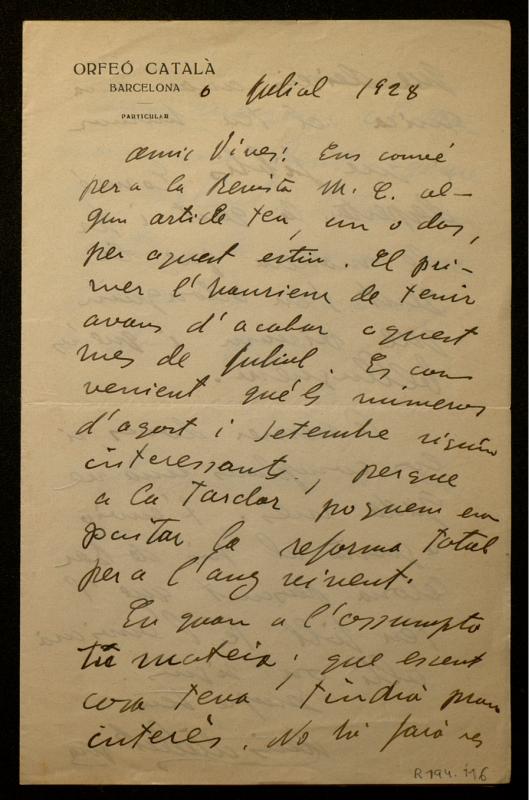 ORFEÓ CATALÀ
BARCELONA
PARTICULAR
6 Juliol 1928
Amic Vives: Ens convé
per a la Revista M. C. al-
gun article teu, un o dos,
per aquest estiu. El pri-
mer l'hauriem de tenir
avans d'acabar aquest
mes de Juliol. Es con
venient que'ls números
d'agost i setembre siguin
interessants, perque
a la tardor poguem em
pastar la reforma total
per a l'any vinent.
En quan a l'assumpto
tu mateix; que essent
cosa teva tindrà prou
interès. No hi farà res
R 194. 116